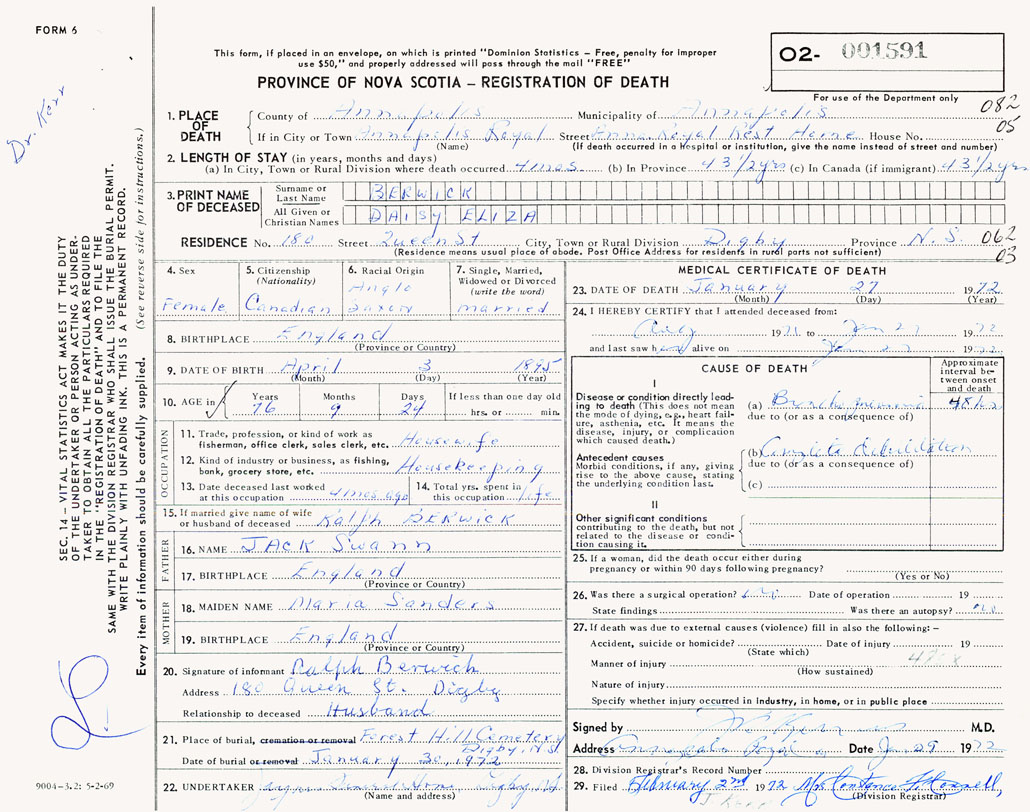 FORM 6
This form, if placed in an envelope, on which is printed "Dominion Statistics – Free, penalty for improper
use $50," and properly addressed will pass through the mail "FREE"
PROVINCE OF NOVA SCOTIA – REGISTRATION OF DEATH
O2- 001591
For use of the Department only
082
05
Dr. Kerr
1. PLACE OF DEATH
County of Annapolis Municipality of Annapolis
If in City or Town Annapolis Royal Street Anna Royal Rest Home House No.
(Name) (If death occurred in a hospital or institution, give the name instead of street and number)
2. LENGTH OF STAY (in years, months and days)
(a) In City, Town or Rural Division where death occurred 4 mos (b) In Province 43 1/2 yrs (c) In Canada (if immigrant) 43 1/2 yrs
3. PRINT NAME OF DECEASED
Surname or Last Name BERWICK
All Given or Christian Names DAISY ELIZA
RESIDENCE No. 180 Street Queen St City, Town or Rural Division Digby Province N.S. 062
(Residence means usual place of abode. Post Office Address for residents in rural parts not sufficient) 03
4. Sex Female
5. Citizenship (Nationality) Canadian
6. Racial Origin Anglo Saxon
7. Single, Married, Widowed or Divorced (write the word) married
8. BIRTHPLACE England
(Province or Country)
9. DATE OF BIRTH April 3 1895
(Month) (Day) (Year)
10. AGE in Years Months Days If less than one day old
76 9 24 hrs. or min.
OCCUPATION
11. Trade, profession, or kind of work as
fisherman, office clerk, sales clerk, etc. Housewife
12. Kind of industry or business, as fishing,
bank, grocery store, etc. Housekeeping
13. Date deceased last worked
at this occupation 4 mos ago
14. Total yrs. spent in
this occupation life
15. If married give name of wife
or husband of deceased Ralph BERWICK
FATHER
16. NAME JACK Swann
17. BIRTHPLACE England
(Province or Country)
MOTHER
18. MAIDEN NAME Maria Sanders
19. BIRTHPLACE England
(Province or Country)
20. Signature of informant Ralph Berwick
Address 180 Queen St. Digby
Relationship to deceased Husband
21. Place of burial, cremation or removal Forest Hill Cemetery
Digby, N.S.
Date of burial or removal January 30, 1972
22. UNDERTAKER
(Name and address)
MEDICAL CERTIFICATE OF DEATH
23. DATE OF DEATH January 27 1972
(Month) (Day) (Year)
24. I HEREBY CERTIFY that I attended deceased from:
Aug 1971 to Jan 27 1972
and last saw her alive on Jan 27 1972
CAUSE OF DEATH
Approximate interval between onset and death
I
Disease or condition directly leading to death (This does not
mean the mode of dying, e.g., heart failure, asthenia, etc. It means the
disease, injury, or complication
which caused death.)
(a) Bronchopneumonia 48 hrs
due to (or as a consequence of)
Antecedent causes
Morbid conditions, if any, giving
rise to the above cause, stating
the underlying condition last.
(b)
due to (or as a consequence of)
(c)
II
Other significant conditions
contributing to the death, but not
related to the disease or condition causing it.
25. If a woman, did the death occur either during
pregnancy or within 90 days following pregnancy?
(Yes or No)
26. Was there a surgical operation? Date of operation 19
State findings Was there an autopsy? no
27. If death was due to external causes (violence) fill in also the following: –
Accident, suicide or homicide? Date of injury 19
(State which)
Manner of injury
(How sustained)
Nature of injury
Specify whether injury occurred in Industry, in home, or in public place
Signed by M.D.
Address Annapolis Royal Date Jan 29 1972
28. Division Registrar's Record Number
29. Filed February 2nd 1972 Mrs Constance
(Division Registrar)
J. Kerr
SEC. 14 – VITAL STATISTICS ACT MAKES IT THE DUTY
OF THE UNDERTAKER OR PERSON ACTING AS UNDER-
TAKER TO OBTAIN ALL THE PARTICULARS REQUIRED
IN THE "REGISTRATION OF DEATH" AND TO FILE THE
SAME WITH THE DIVISION REGISTRAR WHO SHALL ISSUE THE BURIAL PERMIT.
WRITE PLAINLY WITH UNFADING INK. THIS IS A PERMANENT RECORD.
Every item of information should be carefully supplied. (See reverse side for instructions.)
9004-3.2: 5-2-69